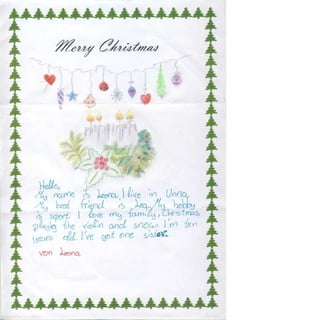 Merry Christmas
Hello,
My name is Leena, I live in Unna,
My best friend is Lea. My hobby
is sport. I love my family, Christmas,
playing the violin and snow. I'm ten
years old. I've got one sister.
von Leena